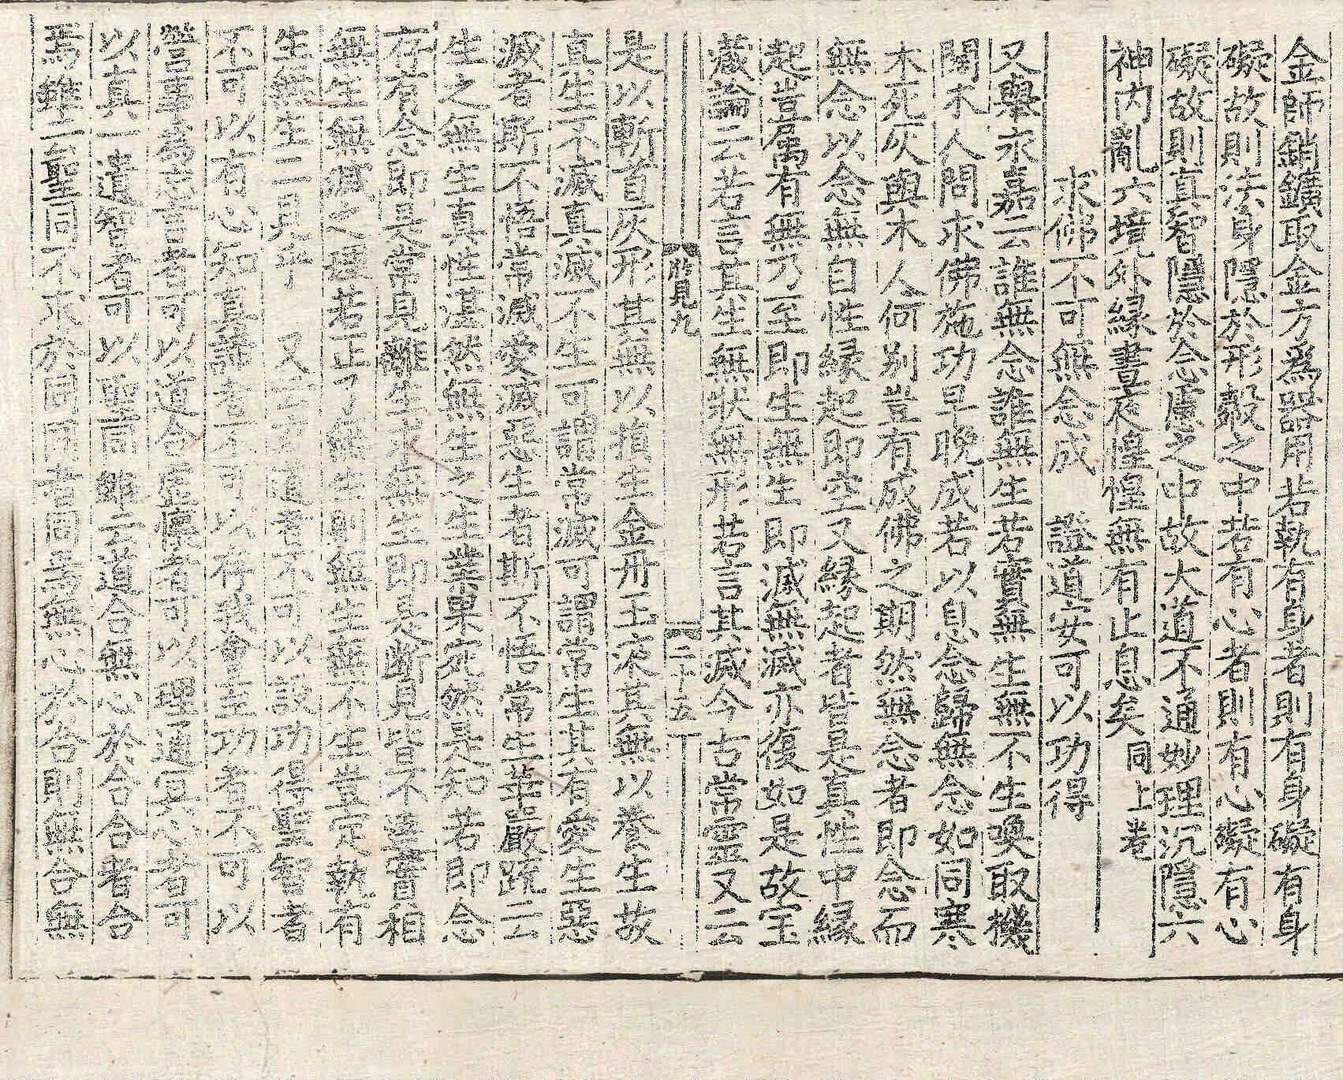 金師銷鑛取金方爲器用若執有身者則有身礙有身
礙故則法身隱於形殼之中若有心者則有心礙有心
礙故則真智隱於念慮之中故大道不通妙理沉隱六
神内亂六境外緣晝夜惶惶無有止息矣同上卷
求佛不可無念成 證道安可以功得
又舉永嘉云誰無念誰無生若實無生無不生喚取機
關木人問求佛施功早晚成若以息念歸無念如同寒
木死灰與木人何别豈有成佛之期然無念者即念而
無念以念無自性緣起即空又緣起者皆是真性中緣
起豈属有無乃至即生無生即滅無滅亦復如是故宝
藏論云若言其生無狀無形若言其滅今古常靈又云
見九
二十五
是以斬首灰形其無以損生金丹玉液其無以養生故
真生不滅真滅不生可謂常滅可謂常生其有愛生惡
滅者斯不悟常滅愛滅惡生者斯不悟常生華嚴疏云
生之無生真性湛然無生之生業果宛然是知若即念
存有念即是常見離生求無生即是断見皆不達實相
無生無滅之理若正了無生則無生無不生豈定執有
生無生二見乎 又云若道者不可以設功得聖智者
不可以有心知真諦者不可以存我會至功者不可以
營事爲忘言者可以道合虚懷者可以理通冥心者可
以真一遺智者可以聖同雖云道合無心於合合者合
焉雖云聖同不求於同同者同焉無心於合則無合無